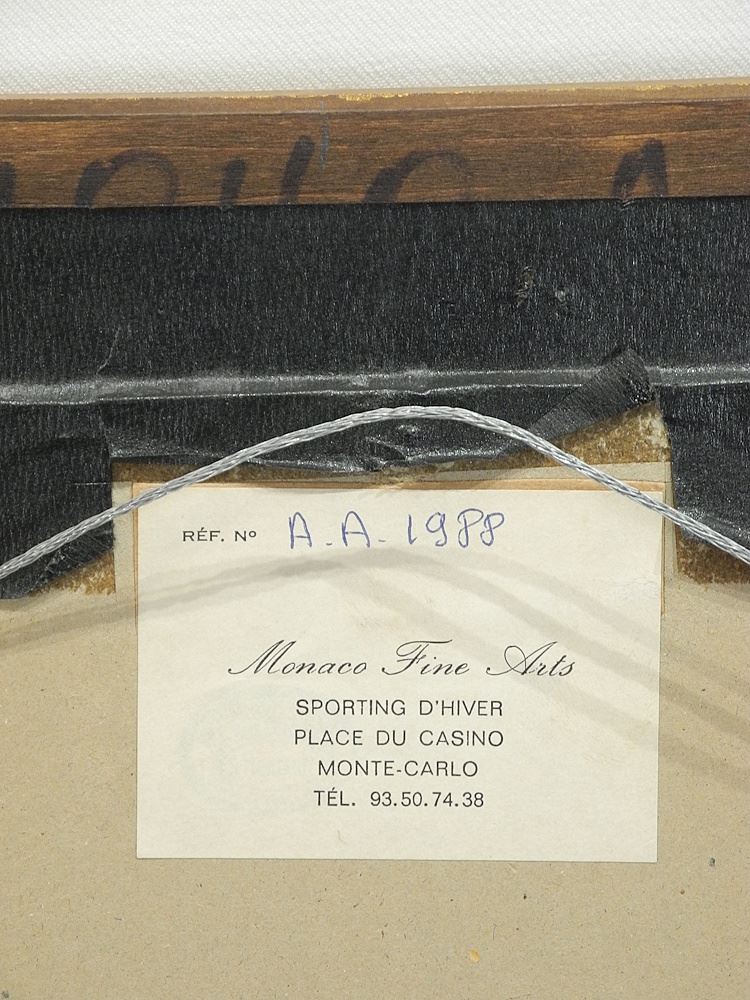 RÉF. Nº A.A. 1988
Monaco Fine Arts
SPORTING D'HIVER
PLACE DU CASINO
MONTE-CARLO
TÉL. 93.50.74.38